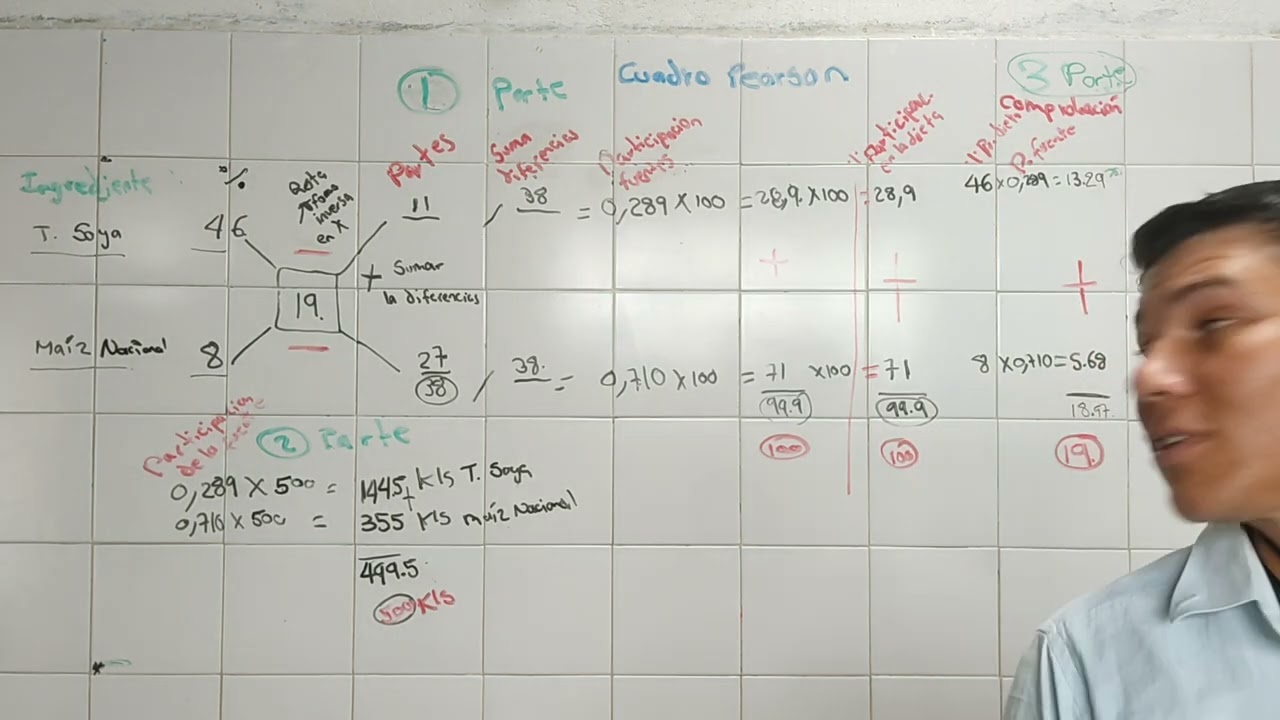 1 Parte Cuadro Pearson
3 Parte
Ingrediente % Resta forma inversa en X Partes Suma diferencias Participacion fuentes Participac. en la dieta Comprobación
P. fuente
T. Soya 46 11 / 38 = 0,289 x 100 = 28,9 x 100 = 28,9 46 x 0,289 = 13.29
19. + Sumar la diferencias + + +
Maíz Nacional 8 27 / 38. = 0,710 x 100 = 71 x 100 = 71 8 x 0,710 = 5.68
38 99.9 99.9 18.97.
100 100 19.
Participacion de la fuente 2 Parte
0,289 x 500 = 1445 Kls T. Soya
+
0,710 x 500 = 355 Kls maíz Nacional
499.5
500 Kls